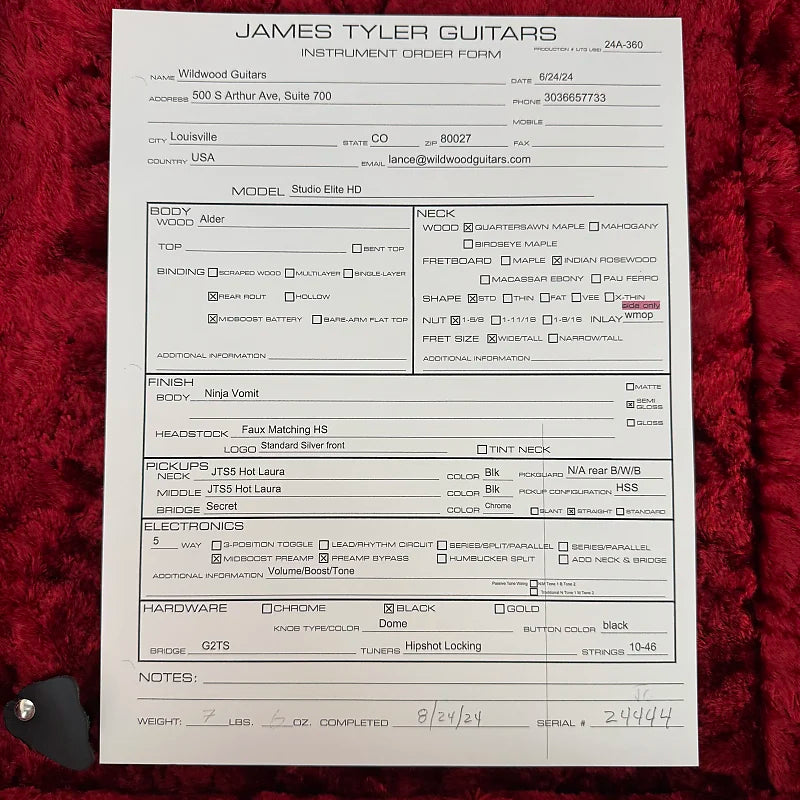 JAMES TYLER GUITARS
INSTRUMENT ORDER FORM
PRODUCTION # (JTG USE) 24A-360
NAME Wildwood Guitars DATE 6/24/24
ADDRESS 500 S Arthur Ave, Suite 700 PHONE 3036657733
MOBILE
CITY Louisville STATE CO ZIP 80027 FAX
COUNTRY USA EMAIL lance@wildwoodguitars.com
MODEL Studio Elite HD
BODY
WOOD Alder
TOP ☐ BENT TOP
BINDING ☐ SCRAPED WOOD ☐ MULTILAYER ☐ SINGLE-LAYER
☒ REAR ROUT ☐ HOLLOW
☒ MIDBOOST BATTERY ☐ BARE-ARM FLAT TOP
ADDITIONAL INFORMATION
NECK
WOOD ☒ QUARTERSAWN MAPLE ☐ MAHOGANY
☐ BIRDSEYE MAPLE
FRETBOARD ☐ MAPLE ☒ INDIAN ROSEWOOD
☐ MACASSAR EBONY ☐ PAU FERRO
SHAPE ☒ STD ☐ THIN ☐ FAT ☐ VEE ☐ X-THIN
side only
NUT ☒ 1-5/8 ☐ 1-11/16 ☐ 1-9/16 INLAY wmop
FRET SIZE ☒ WIDE/TALL ☐ NARROW/TALL
ADDITIONAL INFORMATION
FINISH
BODY Ninja Vomit
☐ MATTE
☒ SEMI GLOSS
☐ GLOSS
HEADSTOCK Faux Matching HS
LOGO Standard Silver front ☐ TINT NECK
PICKUPS
NECK JTS5 Hot Laura COLOR Blk PICKGUARD N/A rear B/W/B
MIDDLE JTS5 Hot Laura COLOR Blk PICKUP CONFIGURATION HSS
BRIDGE Secret COLOR Chrome ☐ SLANT ☒ STRAIGHT ☐ STANDARD
ELECTRONICS
5 WAY ☐ 3-POSITION TOGGLE ☐ LEAD/RHYTHM CIRCUIT ☐ SERIES/SPLIT/PARALLEL ☐ SERIES/PARALLEL
☒ MIDBOOST PREAMP ☒ PREAMP BYPASS ☐ HUMBUCKER SPLIT ☐ ADD NECK & BRIDGE
ADDITIONAL INFORMATION Volume/Boost/Tone
Passive Tone Wiring ☐ N/M Tone 1 B Tone 2
☐ Traditional N Tone 1 M Tone 2
HARDWARE ☐ CHROME ☒ BLACK ☐ GOLD
KNOB TYPE/COLOR Dome BUTTON COLOR black
BRIDGE G2TS TUNERS Hipshot Locking STRINGS 10-46
NOTES:
Jr
WEIGHT: 7 LBS. 6 OZ. COMPLETED 8/24/24 SERIAL # 24444